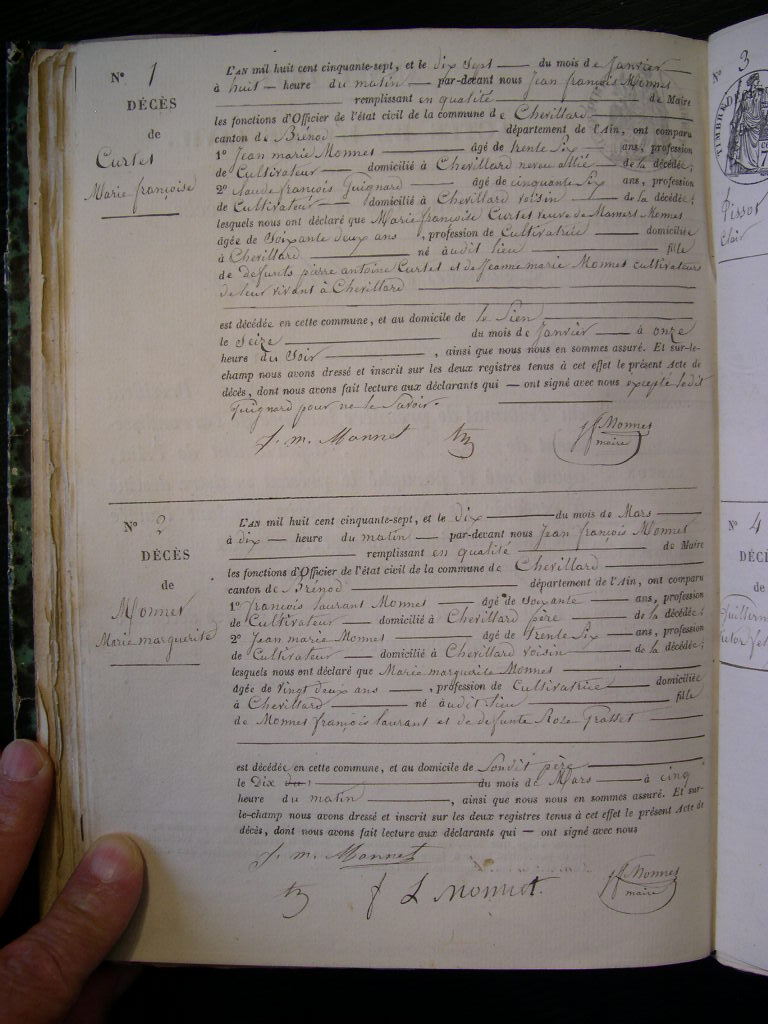 N° 1
DÉCÈS
de
Curtet
Marie françoise
L'AN mil huit cent cinquante-sept, et le dix sept du mois de Janvier
à huit heure du matin par-devant nous Jean françois Monnet
remplissant en qualité de Maire
les fonctions d'Officier de l'état civil de la commune de Chevillard
canton de Brénod département de l'Ain, ont comparu
1° Jean marie Monnet âgé de trente Six ans, profession
de Cultivateur domicilié à Chevillard neveu allié de la décédée;
2° Claude françois Guignard âgé de cinquante Six ans, profession
de Cultivateur domicilié à Chevillard voisin de la décédée;
lesquels nous ont déclaré que Marie françoise Curtet veuve de Mamert Monnet
âgée de Soixante deux ans, profession de Cultivatrice domiciliée
à Chevillard né audit lieu fille
de defunts pierre antoine Curtet et de Jeanne marie Monnet cultivateurs
de leur vivant à Chevillard
est décédée en cette commune, et au domicile de le Sien
le Seize du mois de Janvier à onze
heure du Soir, ainsi que nous nous en sommes assuré. Et sur-le-
champ nous avons dressé et inscrit sur les deux registres tenus à cet effet le présent Acte de
décès, dont nous avons fait lecture aux déclarants qui ont signé avec nous excepté ledit
Guignard pour ne le Savoir.
J. m. Monnet
jf Monnet
maire
N° 2
DÉCÈS
de
Monnet
Marie marguerite
L'AN mil huit cent cinquante-sept, et le dix du mois de Mars
à dix heure du matin par-devant nous Jean françois Monnet
remplissant en qualité de Maire
les fonctions d'Officier de l'état civil de la commune de Chevillard
canton de Brénod département de l'Ain, ont comparu
1° françois laurant Monnet âgé de Soixante ans, profession
de Cultivateur domicilié à Chevillard père de la décédée;
2° Jean marie Monnet âgé de trente Six ans, profession
de Cultivateur domicilié à Chevillard voisin de la décédée;
lesquels nous ont déclaré que Marie marguerite Monnet
âgée de Vingt deux ans, profession de Cultivatrice domiciliée
à Chevillard né audit lieu fille
de Monnet françois laurant et de defunte Roze Grasset
est décédée en cette commune, et au domicile de Sondit père
le Dix du mois de Mars à cinq
heure du matin, ainsi que nous nous en sommes assuré. Et sur-
le-champ nous avons dressé et inscrit sur les deux registres tenus à cet effet le présent Acte de
décès, dont nous avons fait lecture aux déclarants qui ont signé avec nous
J. m. Monnet
f L Monnet.
jf Monnet
maire
N° 3
TIMBRE
Pissot
Clair
N° 4
DÉCÈ
de